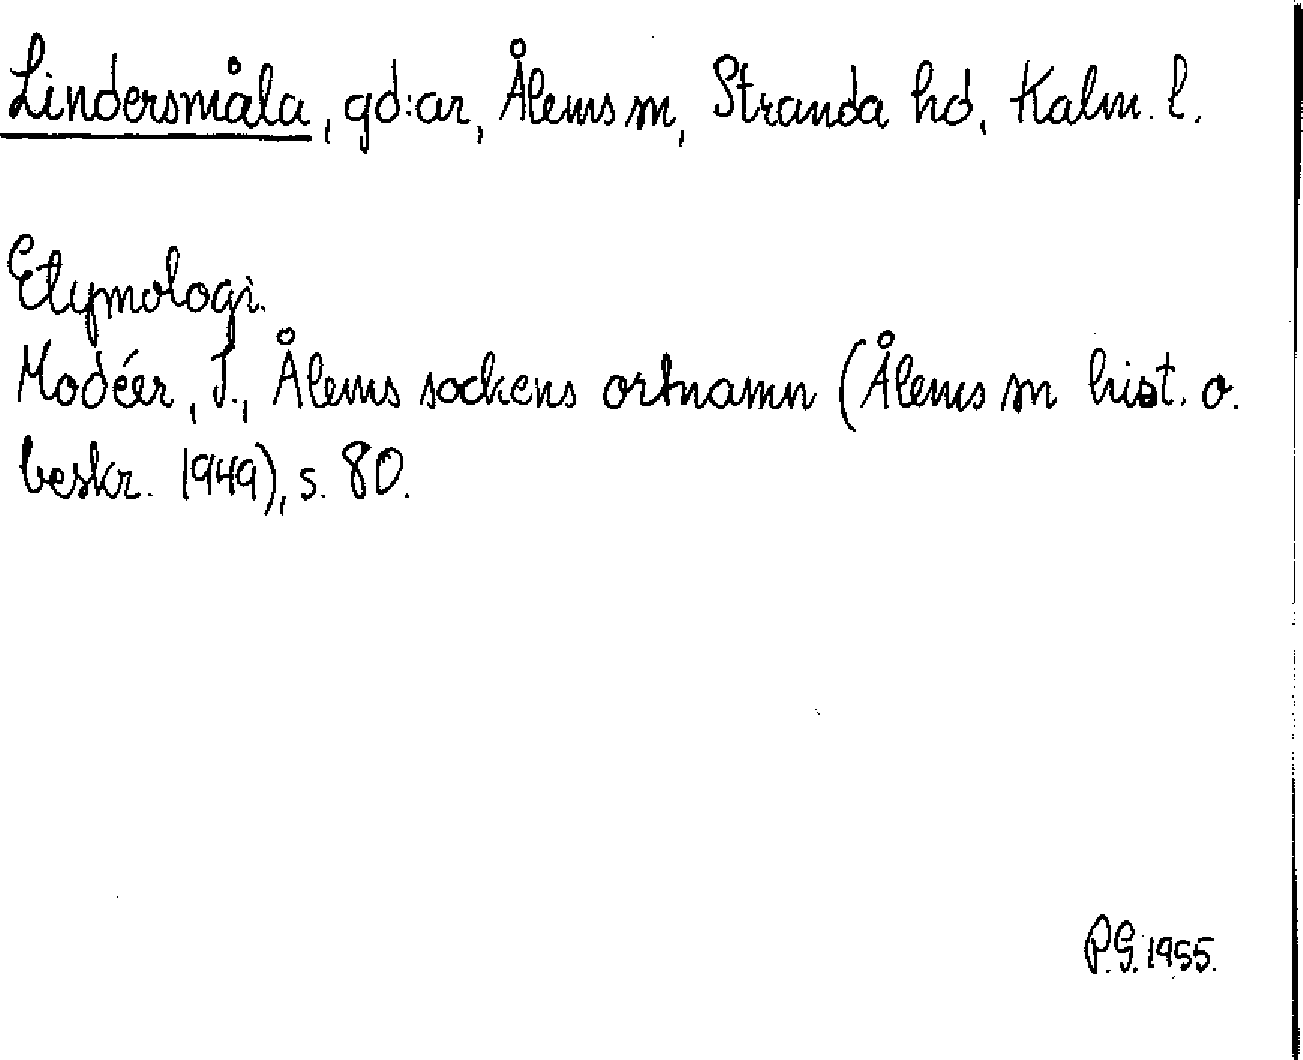 Lindersmåla, gd:ar, Ålems sn, Stranda hd, Kalm. l.
Etymologi.
Modéer, I., Ålems sockens ortnamn (Ålems sn hist. o.
beskr. 1949), s. 80.
P.G. 1955.